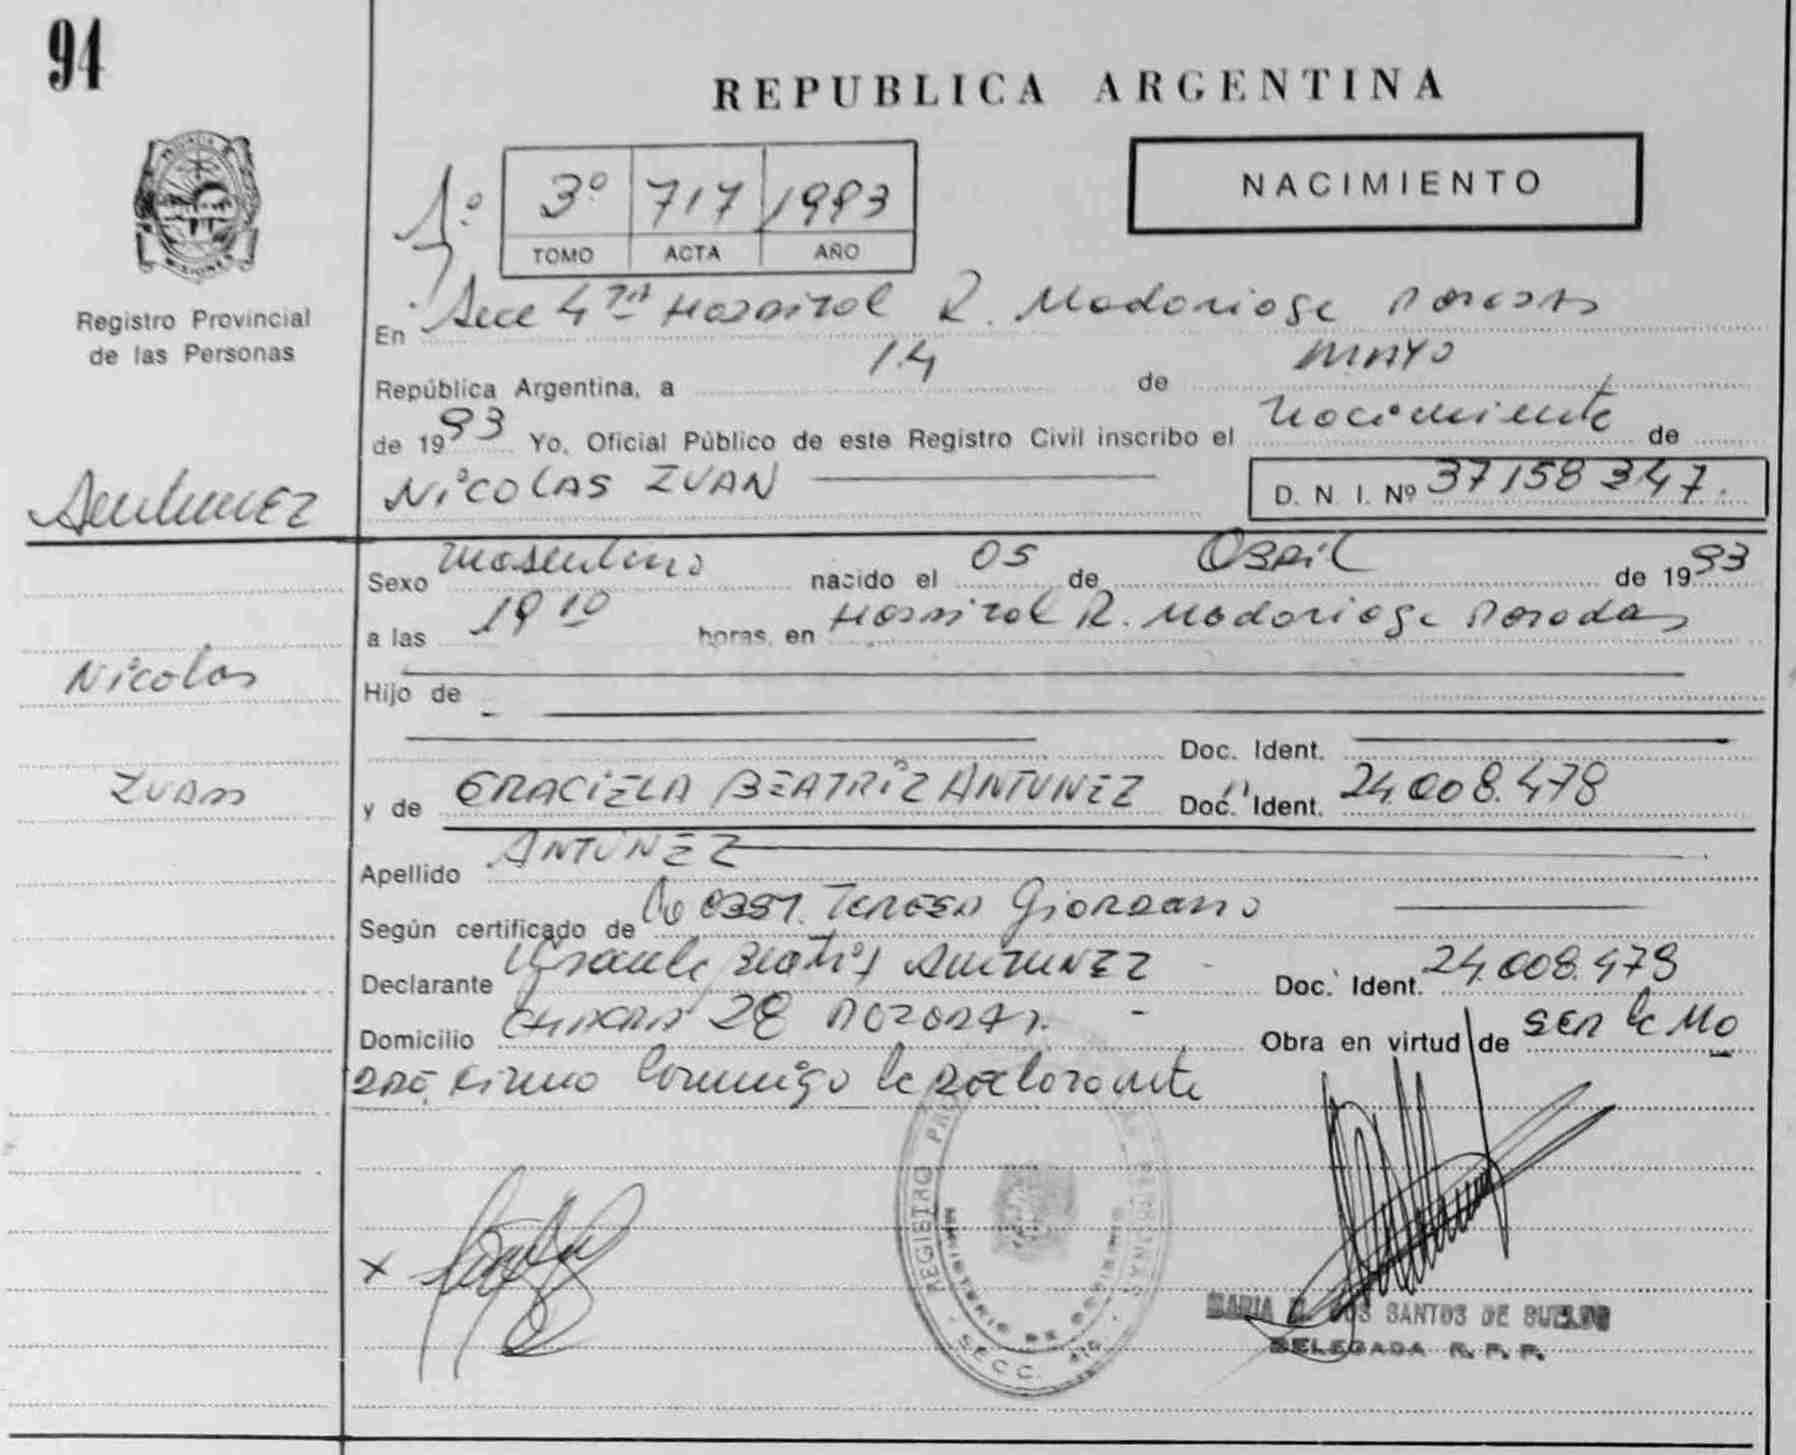 94
REPUBLICA ARGENTINA
NACIMIENTO
1º 3º 717 1993
TOMO ACTA AÑO
Registro Provincial
de las Personas
En Secc 4ta Hospital R. Madariaga Posadas
República Argentina, a 14 de MAYO
de 1993 Yo, Oficial Público de este Registro Civil inscribo el nacimiento de
NICOLAS IVAN D. N. I. Nº 37158347.
Antunez
Sexo masculino nacido el 05 de ABRIL de 1993
a las 19 10 horas, en Hospital R. Madariaga Posadas
Nicolas
Hijo de
Doc. Ident.
Ivan
y de GRACIELA BEATRIZ ANTUNEZ Doc. Ident. 24.008.478
Apellido ANTUNEZ
Según certificado de Obst. Teresa Giordano
Declarante Graciela Beatriz ANTUNEZ Doc. Ident. 24.008.478
Domicilio 28 Posadas. Obra en virtud de SER la MA
DRE. Firma conmigo la declarante
REGISTRO
MINISTERIO DE GOBIERNO
SECC.
X
MARIA DOS SANTOS DE
DELEGADA R. P. P.